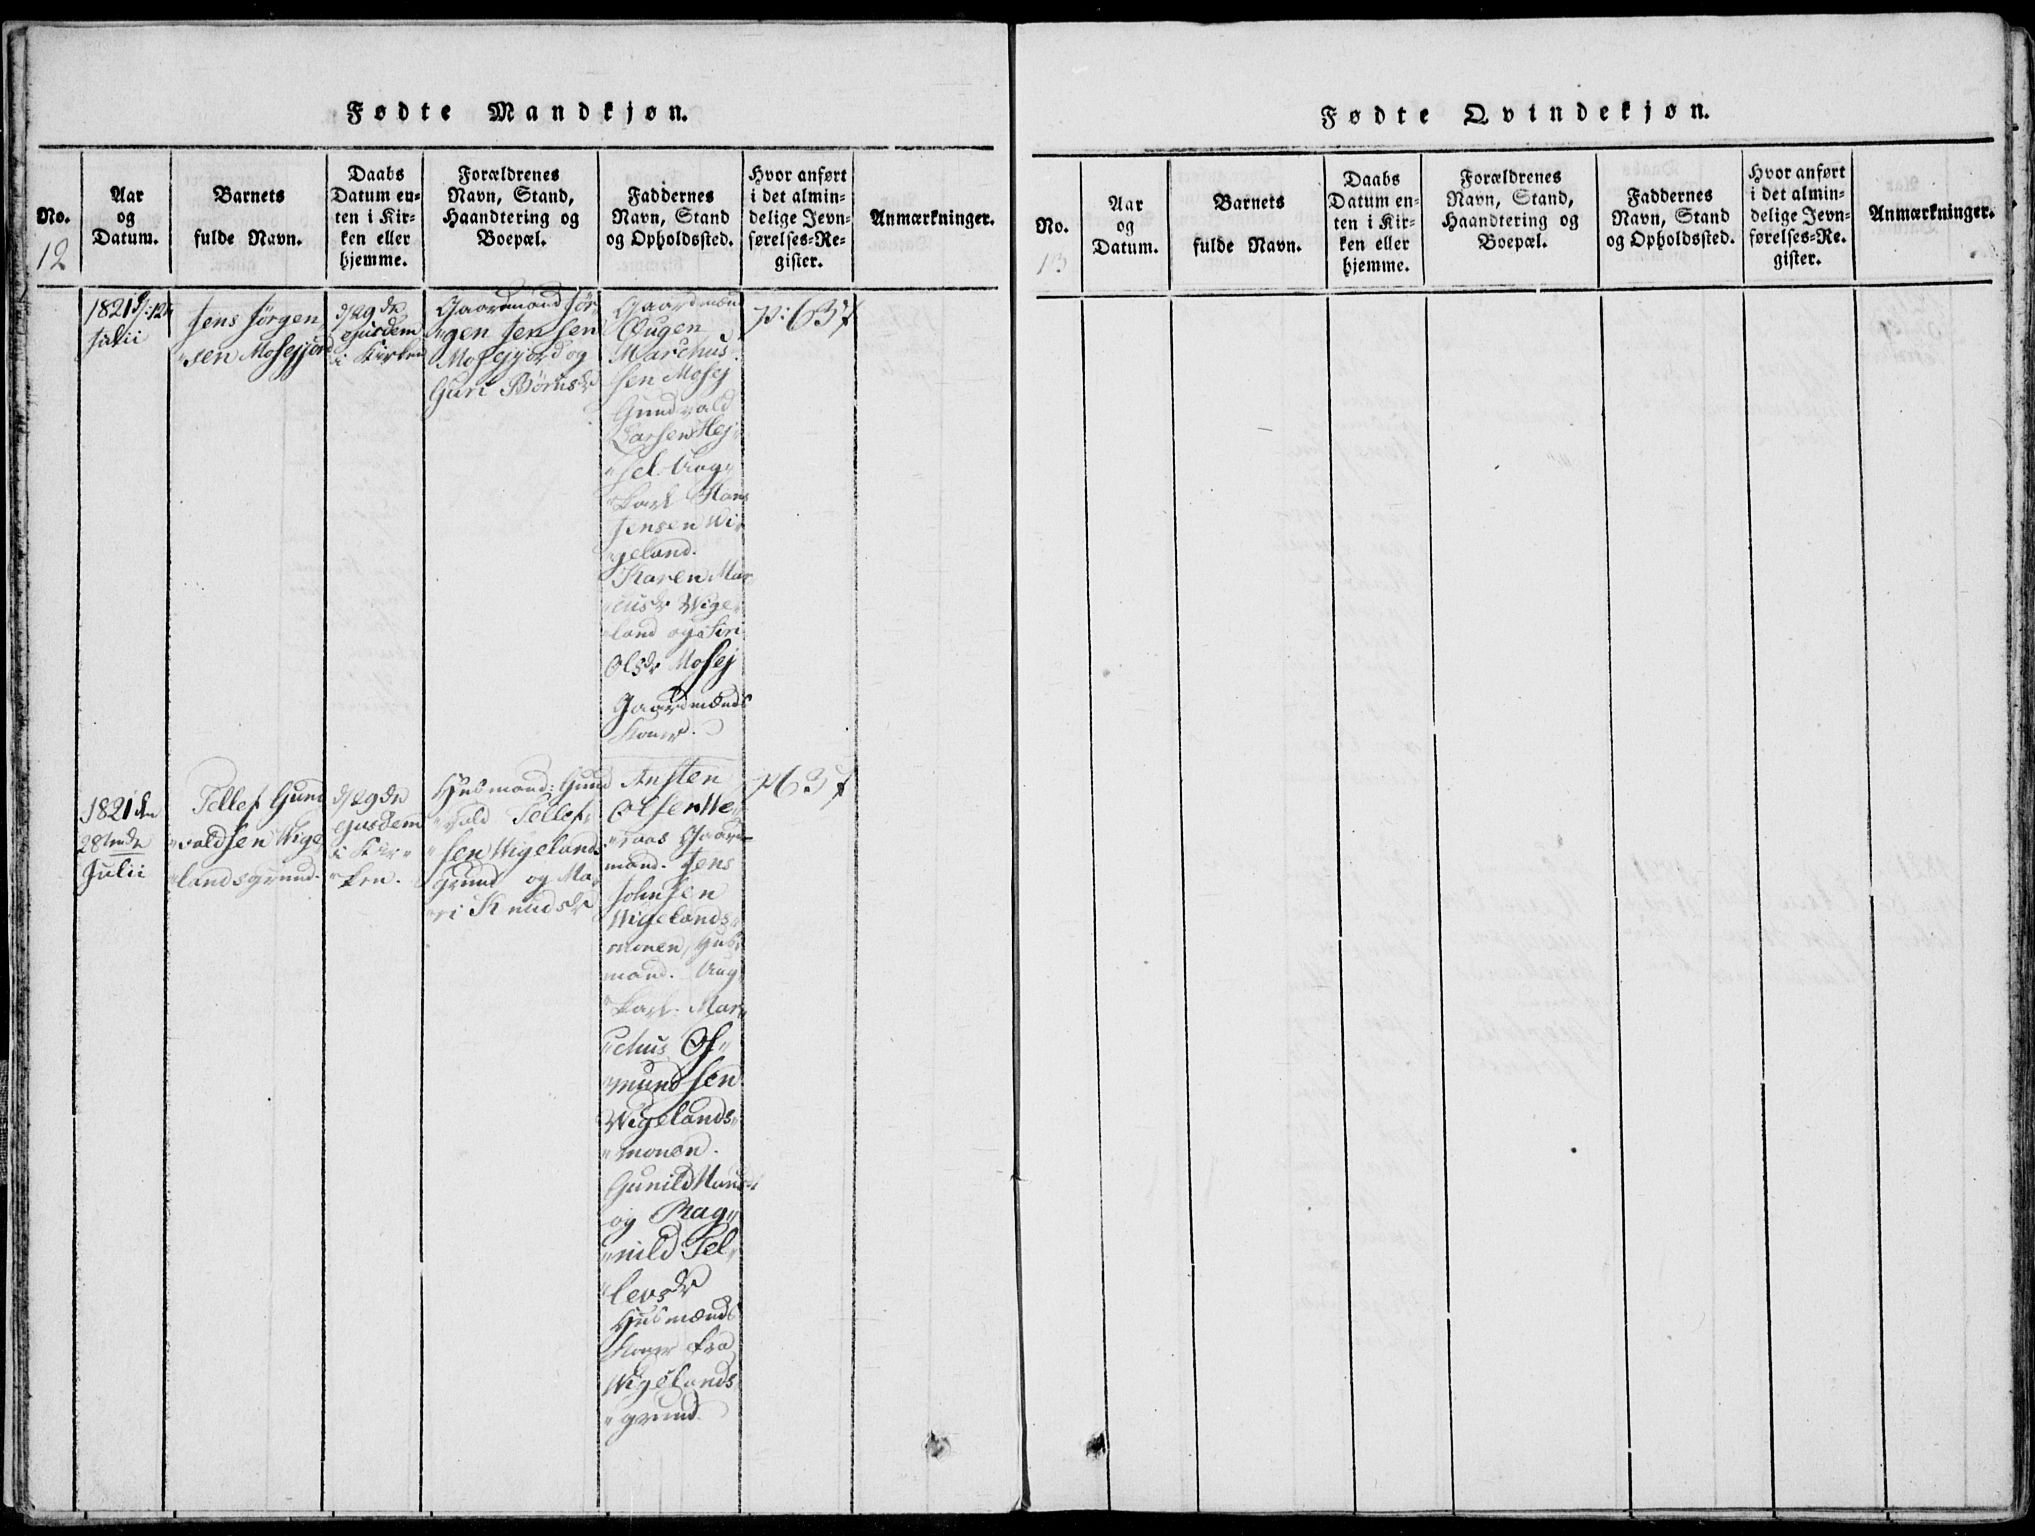 Fødte Mandkjøn.
No.
12
Aar
og
Datum.
Barnets
fulde Navn.
Daabs
Datum en-
ten i Kir-
ken eller
hjemme.
Forældrenes
Navn, Stand,
Haandtering og
Boepæl.
Faddernes
Navn, Stand
og Opholdssted.
Hvor anført
i det almin-
delige Jevn-
førelses-Re-
gister.
Anmærkninger.
1821
Julii
Jens Jørgen
"sen Mosejjord
d/29de
ejusdem
i Kirken
Gaardmand Jør-
"gen Jensen
Mosejjord og
Guri Børnsdr
Gaardmænd
Ougen
Marchus-
sen Mosej
Gundvald
Larsen Hej-
"sel Ung-
karl Hans
Jensen Wi-
"geland.
Karen Mar-
"cusdr Wige-
"land og Siri
Olsdr Mosej
Gaardmænds
Koner.
p: 637
1821 den
28tende
Julii
Tellef Gund
"valdsen Wige
"landsgrund.
d/29de
ejusdem
i Kir-
"ken.
Husmand: Gund
"vald Tellef-
"sen Wigelands
grund og Ma-
"ri Knudsdr
Ansten
Olsen We-
"raas Gaard-
mand. Jens
Johnsen
Wigelands-
monen, Hus-
mand. Ung-
"karl. Mar-
"chus Os-
"mundsen
Wigelands-
"monen.
Gunild
og Rag-
"nild Tel-
"levsdr
Husmænds
Koner fra
Wigelands
"grund.
p 637
Fødte Qvindekjøn.
No.
13
Aar
og
Datum.
Barnets
fulde Navn.
Daabs
Datum en-
ten i Kir-
ken eller
hjemme.
Forældrenes
Navn, Stand,
Haandtering og
Boepæl.
Faddernes
Navn, Stand
og Opholdssted.
Hvor anført
i det almin-
delige Jevn-
førelses-Re-
gister.
Anmærkninger.